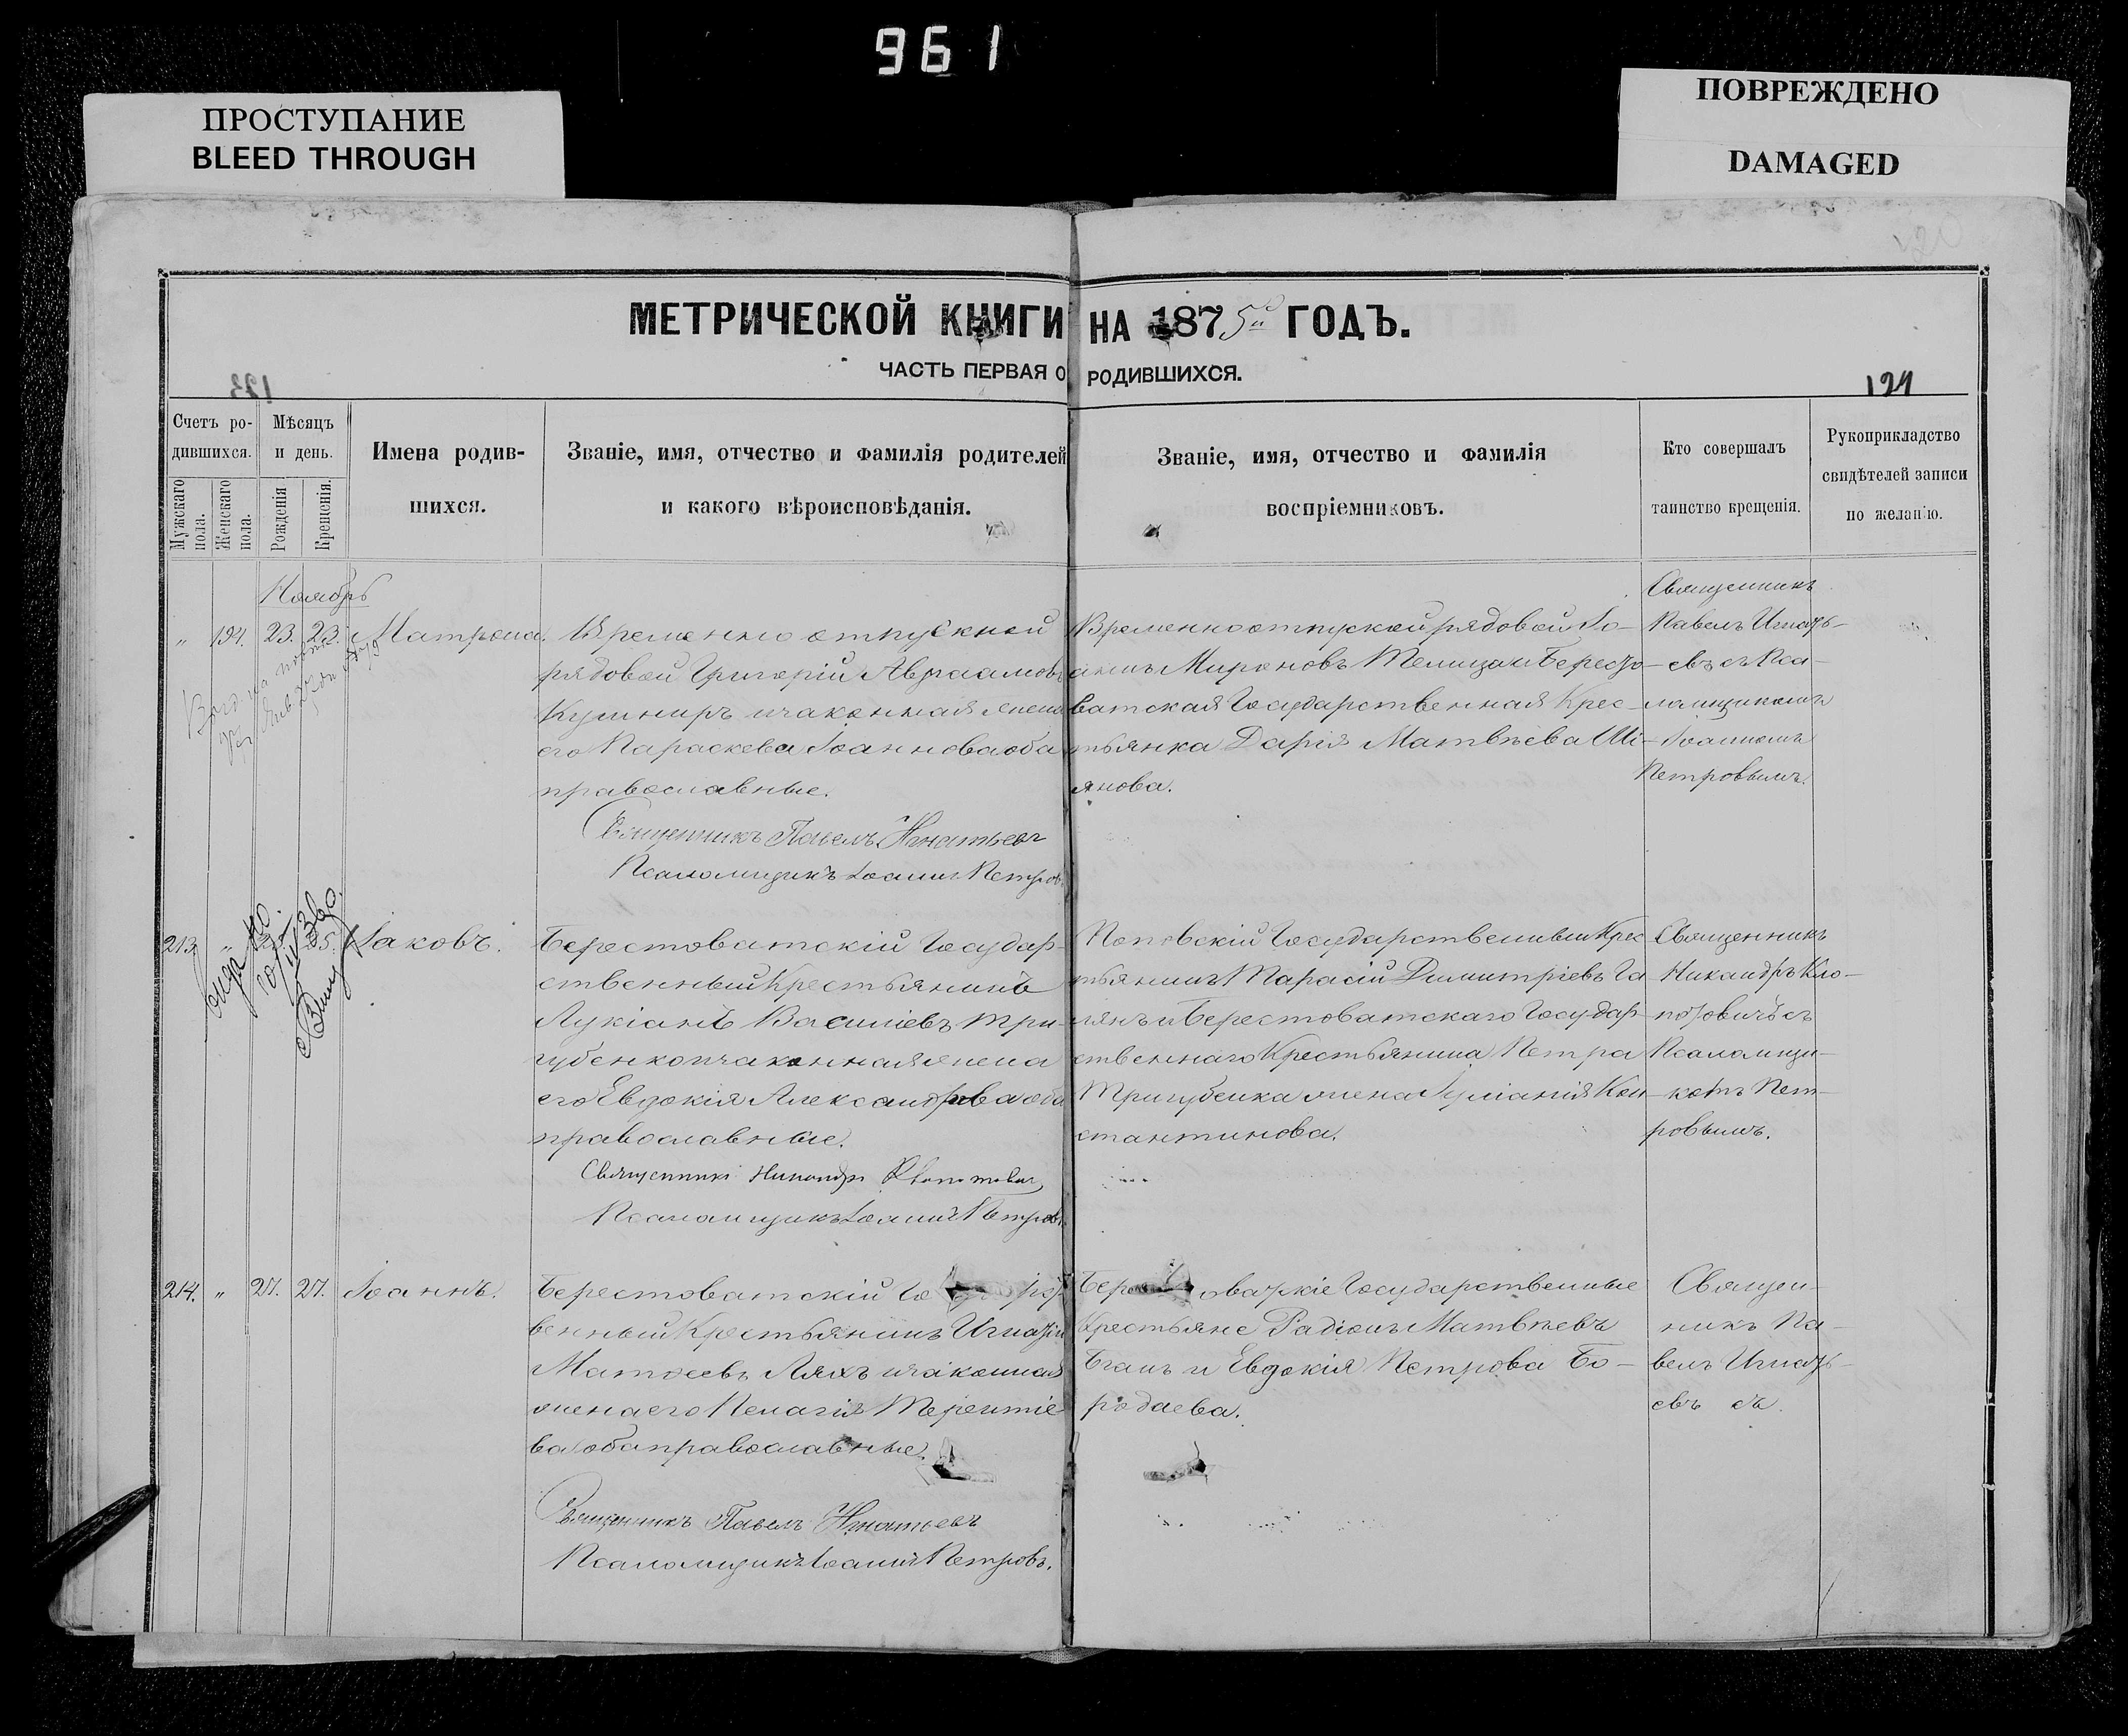 961
ПРОСТУПАНИЕ
BLEED THROUGH
ПОВРЕЖДЕНО
DAMAGED
МЕТРИЧЕСКОЙ КНИГИ НА 1875й ГОДЪ.
ЧАСТЬ ПЕРВАЯ О РОДИВШИХСЯ.
Счетъ ро-
дившихся.
Мужскаго пола.
Женскаго пола.
Мѣсяцъ
и день.
Рожденія
Крещенія.
Имена родив-
шихся.
Званіе, имя, отчество и фамилія родителей
и какого вѣроисповѣданія.
Званіе, имя, отчество и фамилія
воспріемниковъ.
Кто совершалъ
таинство крещенія.
Рукоприкладство
свидѣтелей записи
по желанію.
Ноябрь
„ 194. 23. 23. Матрона.
Временно отпускной
рядовой Григорій Авраамовъ
Кушниръ и законная жена
его Параскева Іоаннова оба
православные.
Священникъ Павелъ Игнатьевъ
Псаломщикъ Іоаннъ Петровъ
Временно отпускной рядовой Іо-
аннъ Мироновъ и Бересто-
ватская Государственная Крес-
тьянка Дарія Матвѣева Ші-
янова.
Священникъ
Павелъ Игнать-
евъ съ Пса-
ломщикомъ
Іоанномъ
Петровымъ.
213. „ 25. Іаковъ.
Берестоватскій Государ-
ственный Крестьянинъ
Лукіанъ Василіевъ Три-
губенко и законная жена
его Евдокія Александрова оба
православные.
Священникъ Никандръ
Псаломщикъ Іоаннъ Петровъ
Поповскій Государственный Крес
тьянинъ Тарасій Димитріевъ Га
лянъ и Берестоватскаго Государ-
ственнаго Крестьянина Петра
Тригубенка жена Іуліанія Кон
стантинова.
Священникъ
Никандръ Кло-
потовичъ съ
Псаломщи-
комъ Пет-
ровымъ.
214. „ 27. 27. Іоаннъ.
Берестоватскій
венный Крестьянинъ Игнатій
Матѳеевъ Ляхъ и законная
жена его Пелагія Терентіе
ва оба православные.
Священникъ Павелъ Игнатьевъ
Псаломщикъ Іоаннъ Петровъ.
Государственные
Крестьяне Радіонъ Матвѣевъ
и Евдокія Петрова Бо-
родаева.
Священ-
никъ Па-
велъ Игнать-
евъ съ